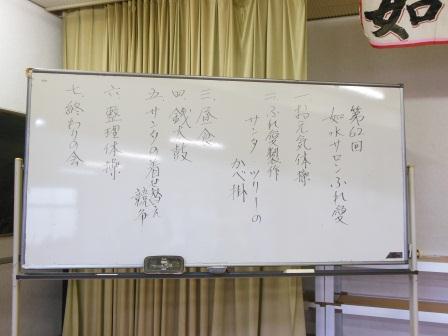 第62回
如水サロンふれ愛
一、お元気体操
二、ふれ愛製作
サンタ ツリーの
かべ掛
三、昼食
四、銭太鼓
五、サンタの着せ替え
競争
六、整理体操
七、終わりの会
如